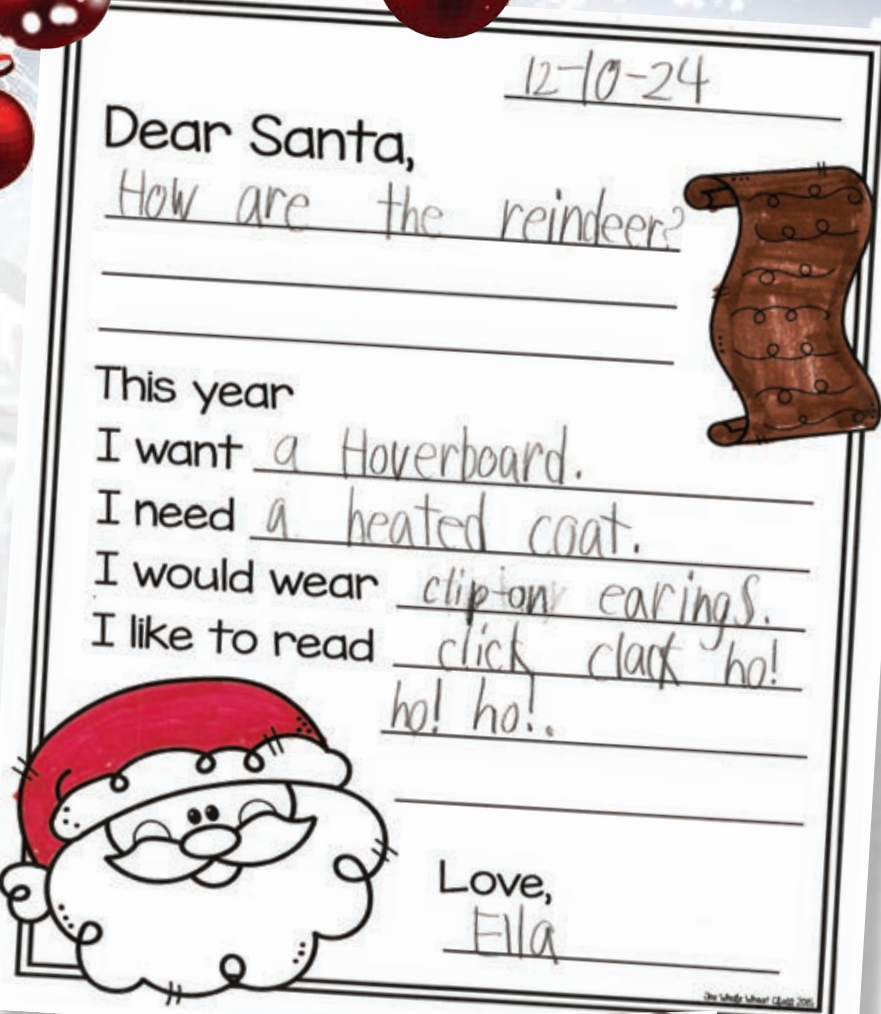 12-10-24
Dear Santa,
How are the reindeer?
This year
I want a Hoverboard.
I need a heated coat.
I would wear clip-on earings.
I like to read click clack ho!
ho! ho!.
Love,
Ella
The Whole Wheat Class 2015